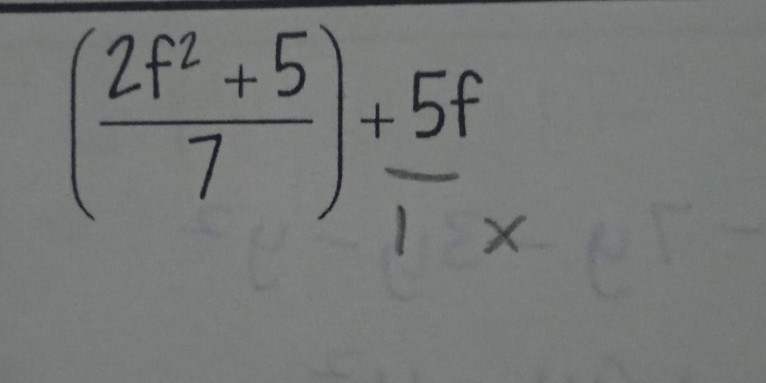 (2f² + 5 / 7) + 5f / 1 x